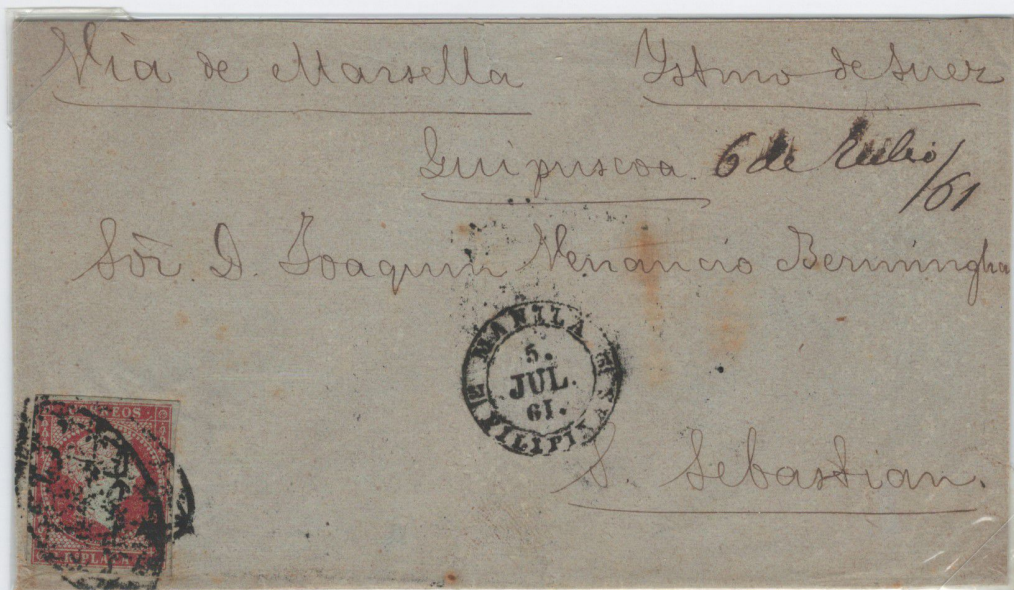 Via de Marsella Ystmo de Suez
Guipuscoa 6 de Julio /61
Sör. D. Joaquin Venancio Bermingha
MANILA
5.
JUL.
61.
FILIPINAS
S. Sebastian.
CORREOS
PLATA